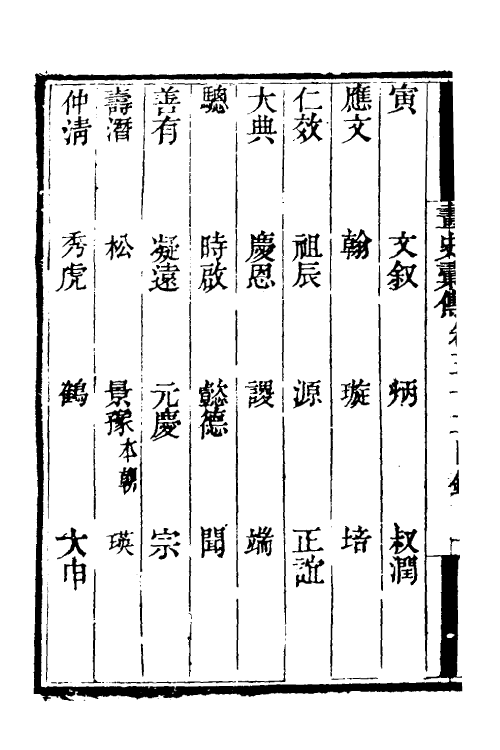 畫史彙傳卷五十二目錄
寅 文叙 炳 叔潤
應文 翰 璇 培
仁效 祖辰 源 正誼
大典 慶恩 謖 端
驄 時啟 懿德 聞
善有 凝遠 元慶 宗
壽潛 松 景豫本朝 瑛
仲清 秀虎 鶴 大申